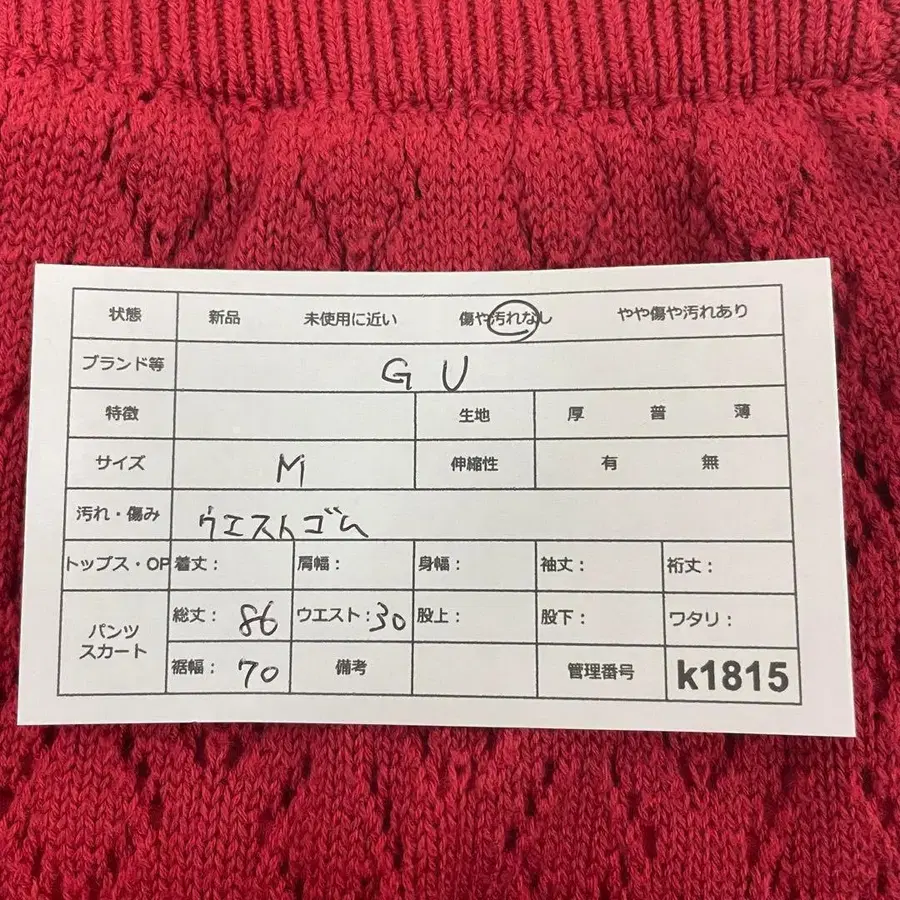 状態 新品 未使用に近い 傷や汚れなし やや傷や汚れあり
ブランド等 GU
特徴 生地 厚 普 薄
サイズ M 伸縮性 有 無
汚れ・傷み ウエストゴム
トップス・OP 着丈： 肩幅： 身幅： 袖丈： 裄丈：
パンツ
スカート
総丈：86 ウエスト：30 股上： 股下： ワタリ：
裾幅：70 備考 管理番号 k1815